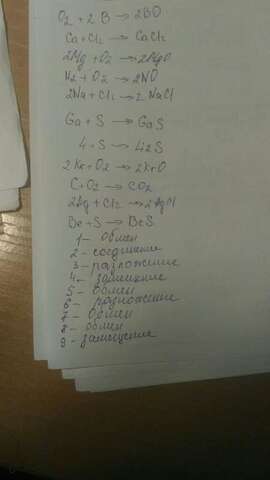 O2 + 2 B → 2BO
Ca + Cl2 → CaCl2
2Mg + O2 → 2MgO
N2 + O2 → 2NO
2Na + Cl2 → 2 NaCl
Ga + S → GaS
4 + S → Li2S
2 Kr + O2 → 2KrO
C + O2 → CO2
2Ag + Cl2 → 2AgCl
Be + S → BeS
1 - обмен
2 - соединение
3 - разложение
4 - замещение
5 - обмен
6 - разложение
7 - обмен
8 - обмен
9 - замещение